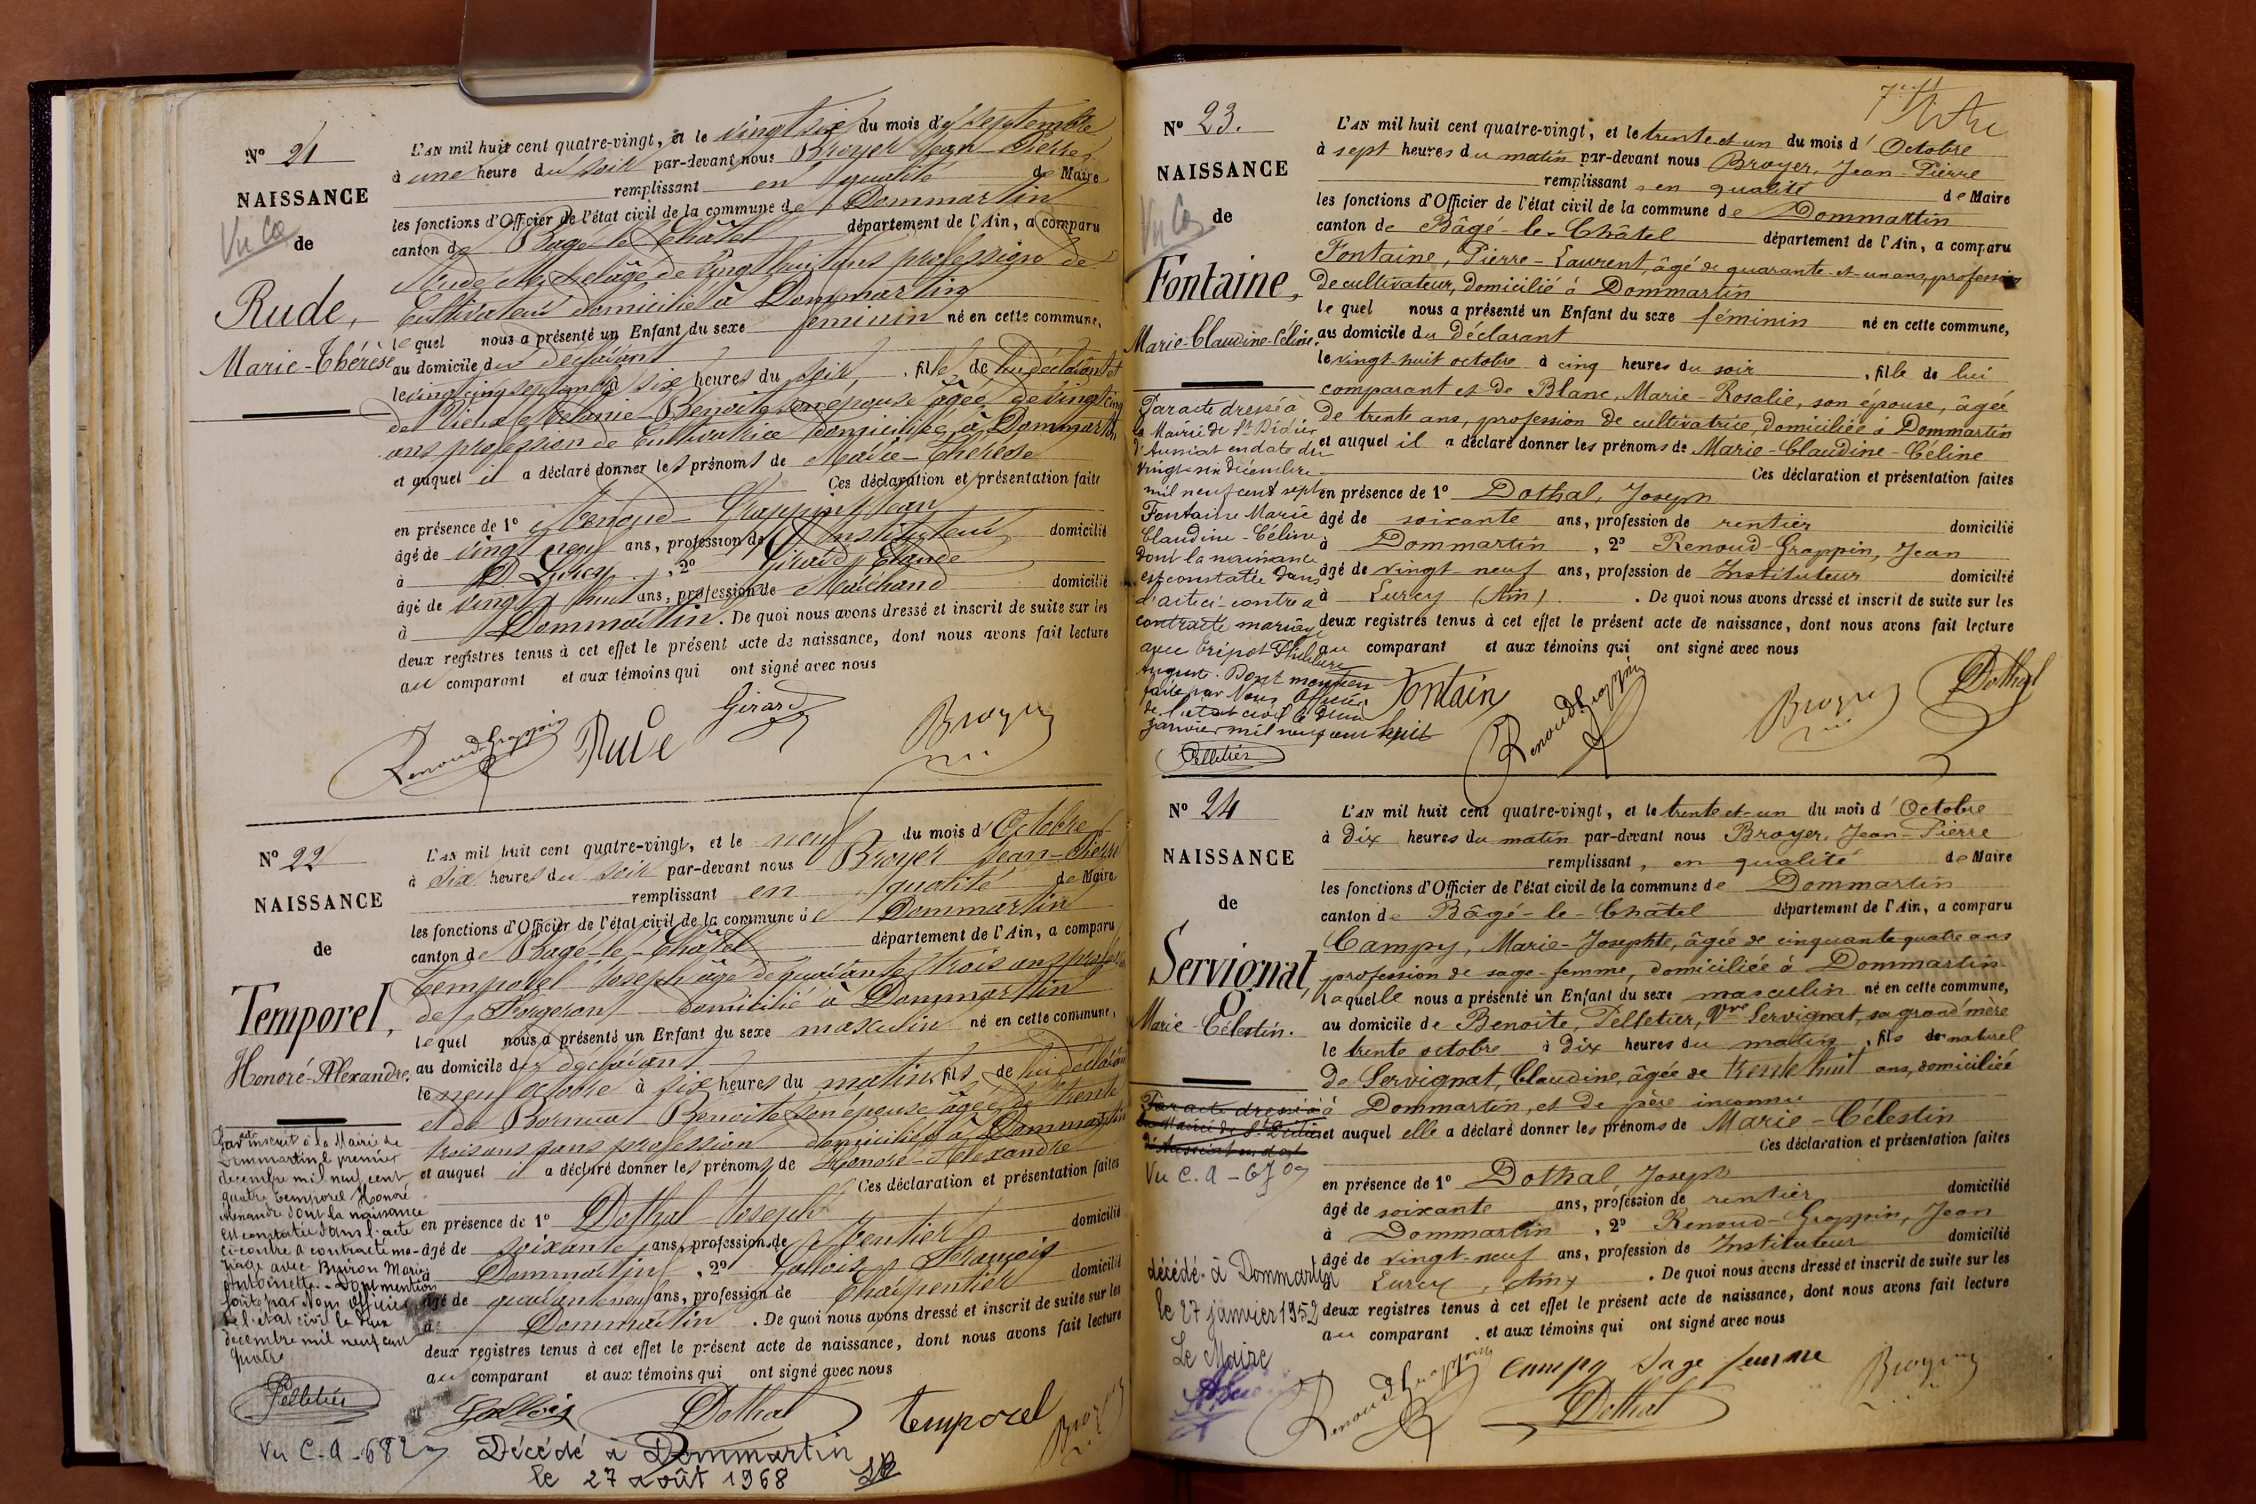 N° 21
NAISSANCE
Vu Ca
de
Rude,
Marie-Thérèse
L'AN mil huit cent quatre-vingt, et le vingt six du mois de septembre
à une heure du soir par-devant nous Broyer Jean-Pierre
remplissant en qualité de Maire
les fonctions d'Officier de l'état civil de la commune de Dommartin
canton de Bagé-le-Châtel département de l'Ain, a comparu
Rude âgé de vingt huit ans profession de
Cultivateur domicilié à Dommartin
lequel nous a présenté un Enfant du sexe feminin né en cette commune,
au domicile du déclarant
le vingt cinq septembre à six heures du soir, fille de lui déclarant et
de Vieux Mélanie-Benoite son épouse âgée de vingt cinq
ans profession de Cultivatrice domiciliée à Dommartin
et auquel il a déclaré donner les prénoms de Marie-Thérèse
Ces déclaration et présentation faites
en présence de 1° Renoud-Grappin Jean
âgé de vingt neuf ans, profession de Instituteur domicilié
à Lurcy, 2° Girard Claude
âgé de vingt huit ans, profession de Marchand domicilié
à Dommartin. De quoi nous avons dressé et inscrit de suite sur les
deux registres tenus à cet effet le présent acte de naissance, dont nous avons fait lecture
au comparant et aux témoins qui ont signé avec nous
Renoud Grappin Rude Girard Broyer
N° 22
NAISSANCE
de
Temporel,
Honoré-Alexandre.
L'AN mil huit cent quatre-vingt, et le neuf du mois d'Octobre
à six heures du soir par-devant nous Broyer Jean-Pierre
remplissant en qualité de Maire
les fonctions d'Officier de l'état civil de la commune de Dommartin
canton de Bagé-le-Châtel département de l'Ain, a comparu
Temporel Joseph âgé de quarante trois ans profession
de Forgeron domicilié à Dommartin
lequel nous a présenté un Enfant du sexe masculin né en cette commune,
au domicile du déclarant
le neuf octobre à six heures du matin, fils de lui déclarant
et de Benoite son épouse âgée de trente
trois ans sans profession domiciliée à Dommartin
et auquel il a déclaré donner les prénoms de Honoré-Alexandre
Ces déclaration et présentation faites
en présence de 1° Dothal Joseph
âgé de soixante ans, profession de rentier domicilié
à Dommartin, 2° Gallois François
âgé de quarante neuf ans, profession de Charpentier domicilié
à Dommartin. De quoi nous avons dressé et inscrit de suite sur les
deux registres tenus à cet effet le présent acte de naissance, dont nous avons fait lecture
au comparant et aux témoins qui ont signé avec nous
Par acte inscrit à la Mairie de
Dommartin le premier
décembre mil neuf cent
quatre Temporel Honoré
Alexandre dont la naissance
est constatée dans l'acte
ci-contre a contracté ma-
riage avec Buiron Marie
Antoinette. Dont mention
faite par Nous Officier
de l'état civil le deux
décembre mil neuf cent
quatre
Pelletier
Gallois Dothal Temporel Broyer
Vu C.A-682
Décédé à Dommartin
le 27 août 1968
N° 23.
NAISSANCE
Vu Ca
de
Fontaine,
Marie-Claudine-Céline.
L'AN mil huit cent quatre-vingt, et le trente-et-un du mois d'Octobre
à sept heures du matin par-devant nous Broyer, Jean-Pierre
remplissant, en qualité de Maire
les fonctions d'Officier de l'état civil de la commune de Dommartin
canton de Bâgé-le-Châtel département de l'Ain, a comparu
Fontaine, Pierre-Laurent, âgé de quarante-et-un ans, profession
de cultivateur, domicilié à Dommartin
lequel nous a présenté un Enfant du sexe féminin né en cette commune,
au domicile du déclarant
le vingt-huit octobre à cinq heures du soir, fille de lui
comparant et de Blanc, Marie-Rosalie, son épouse, âgée
de trente ans, profession de cultivatrice, domiciliée à Dommartin
et auquel il a déclaré donner les prénoms de Marie-Claudine-Céline
Ces déclaration et présentation faites
en présence de 1° Dothal, Joseph
âgé de soixante ans, profession de rentier domicilié
à Dommartin, 2° Renoud-Grappin, Jean
âgé de vingt neuf ans, profession de Instituteur domicilié
à Lurcy (Ain). De quoi nous avons dressé et inscrit de suite sur les
deux registres tenus à cet effet le présent acte de naissance, dont nous avons fait lecture
au comparant et aux témoins qui ont signé avec nous
Par acte dressé à
la Mairie de St Didier
d'Aussiat en date du
vingt-six décembre
mil neuf cent sept
Fontaine Marie
Claudine-Céline
dont la naissance
est constatée dans
l'acte ci-contre a
contracté mariage
avec Tripot Philibert
August. Dont mention
faite par Nous Officier
de l'état civil le deux
janvier mil neuf cent huit
Pelletier
Fontain Renoud Grappin Broyer Dothal
N° 24
NAISSANCE
de
Servignat,
Marie-Célestin.
L'AN mil huit cent quatre-vingt, et le trente-et-un du mois d'Octobre
à Dix heures du matin par-devant nous Broyer, Jean-Pierre
remplissant, en qualité de Maire
les fonctions d'Officier de l'état civil de la commune de Dommartin
canton de Bâgé-le-Châtel département de l'Ain, a comparu
Campy, Marie-Josephte, âgée de cinquante quatre ans
profession de sage-femme, domiciliée à Dommartin
laquelle nous a présenté un Enfant du sexe masculin né en cette commune,
au domicile de Benoîte, Pelletier, Vve Servignat, sa grand'mère
le trente octobre à Dix heures du matin, fils de naturel
de Servignat, Claudine, âgée de trente huit ans, domiciliée
à Dommartin, et de père inconnu
et auquel elle a déclaré donner les prénoms de Marie-Célestin
Ces déclaration et présentation faites
en présence de 1° Dothal Joseph
âgé de soixante ans, profession de rentier domicilié
à Dommartin, 2° Renoud-Grappin, Jean
âgé de vingt-neuf ans, profession de Instituteur domicilié
à Lurcy, Ain. De quoi nous avons dressé et inscrit de suite sur les
deux registres tenus à cet effet le présent acte de naissance, dont nous avons fait lecture
au comparant, et aux témoins qui ont signé avec nous
Par acte dressé à
la Mairie de St Didier
d'Aussiat en date
Vu C.A-67
décédé à Dommartin
le 27 janvier 1952
Le Maire
Renoud Grappin Campy Sage femme Dothal Broyer